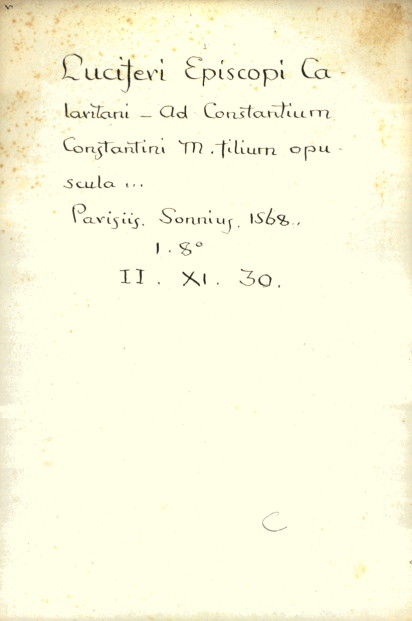 Luciferi Episcopi Ca-
laritani - Ad Constantium
Constantini M. filium opu-
scula ...
Parisiis. Sonnius. 1568..
1. 8°
II. XI. 30.
C